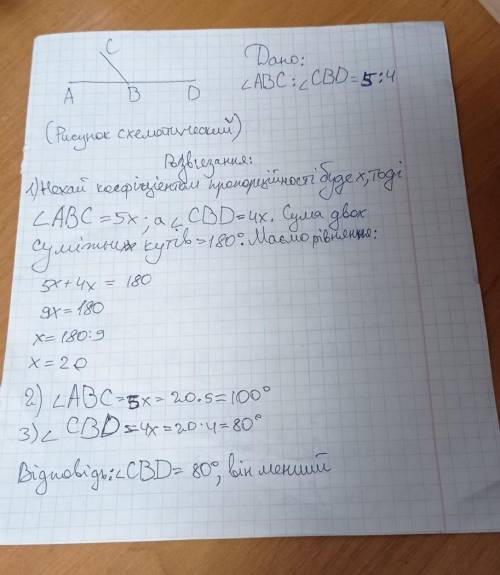 C
A B D
Дано:
∠ABC:∠CBD=5:4
(Рисунок схематический)
Розв'язання:
1) Нехай коефіцієнтом пропорційності буде x, тоді
∠ABC=5x; а ∠CBD=4x. Сума двох
суміжних кутів=180°. Маємо рівняння:
5x+4x = 180
9x=180
x=180:9
x=20
2) ∠ABC=5x=20·5=100°
3) ∠CBD=4x=20·4=80°
Відповідь: ∠CBD= 80°, він менший